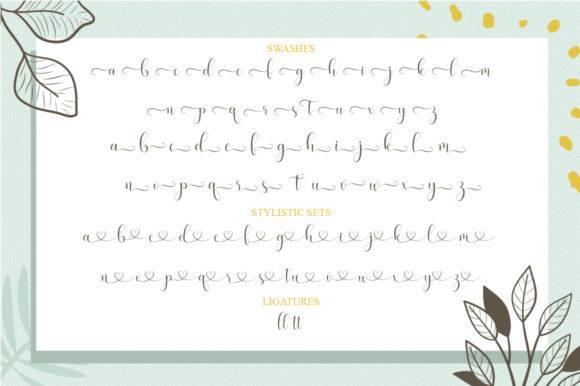 SWASHES
a b c d e f g h i j k l m
n p q r s t u x y z
a b c d e f g h i j k l m
n o p q r s t u v w x y z
STYLISTIC SETS
a b c d e f g h i j k l m
n o p q r s t u v w x y z
LIGATURES
ll tt